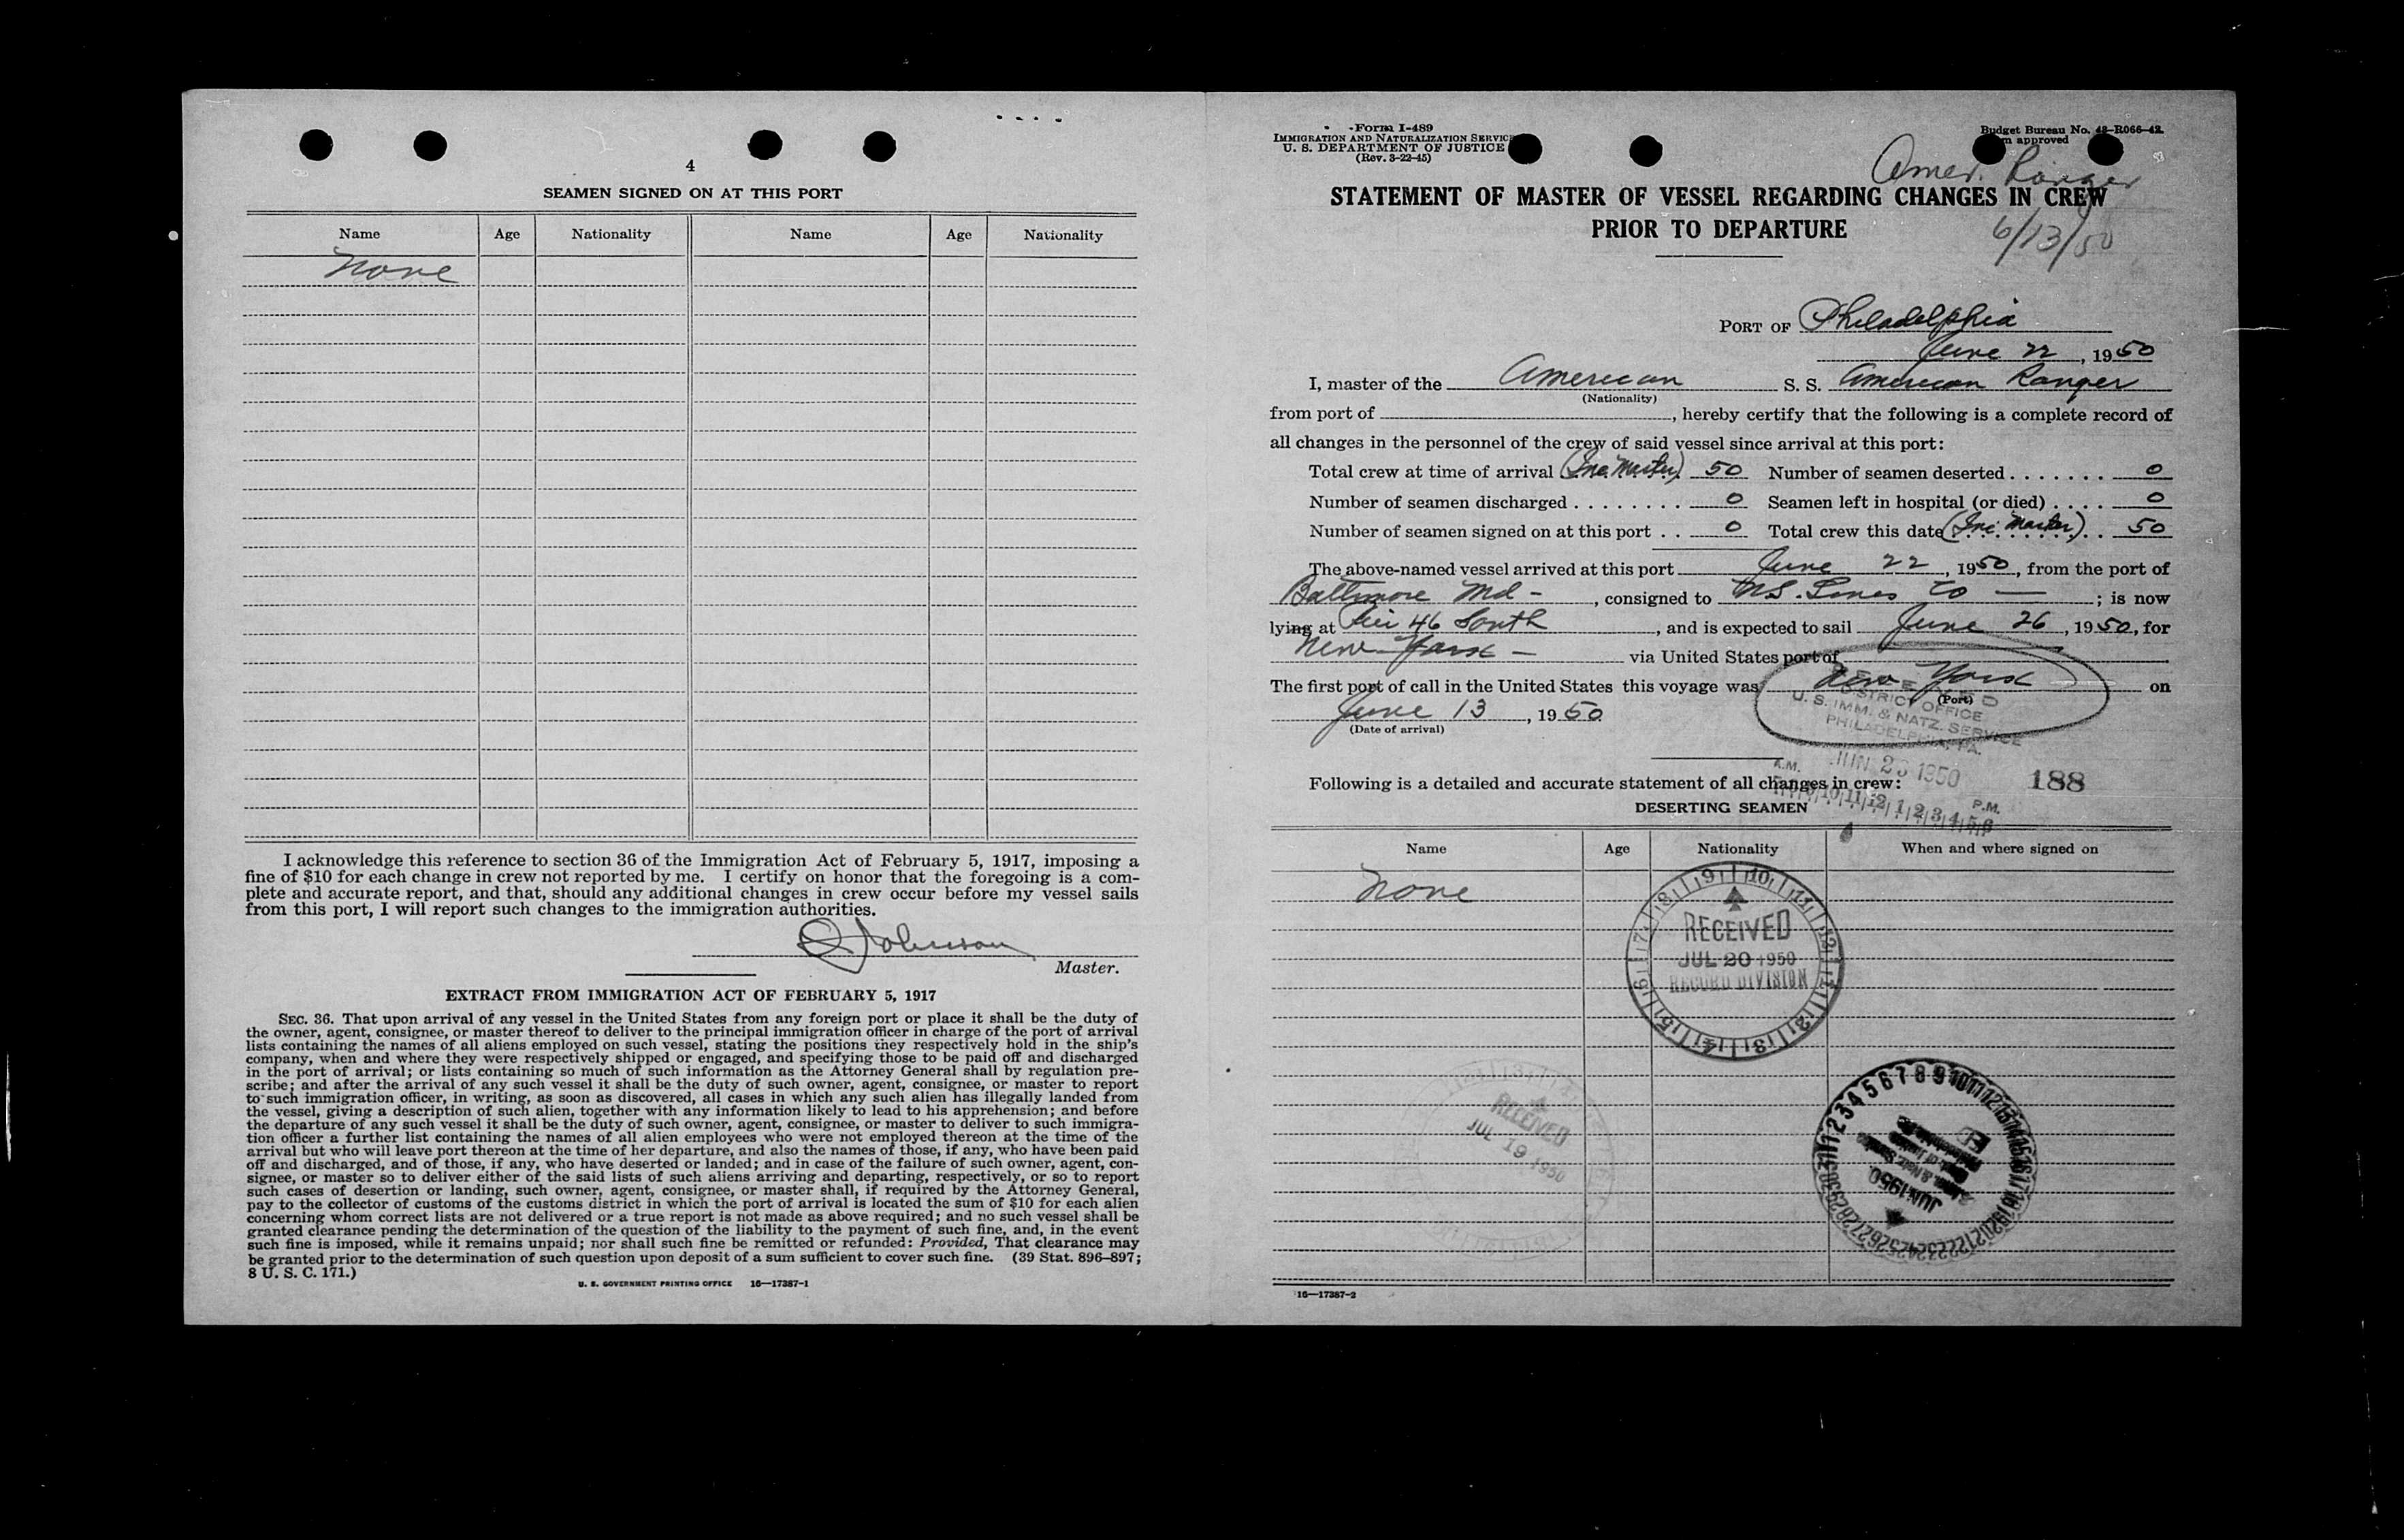 4
SEAMEN SIGNED ON AT THIS PORT
Name Age Nationality Name Age Nationality
None
I acknowledge this reference to section 36 of the Immigration Act of February 5, 1917, imposing a
fine of $10 for each change in crew not reported by me. I certify on honor that the foregoing is a com-
plete and accurate report, and that, should any additional changes in crew occur before my vessel sails
from this port, I will report such changes to the immigration authorities.
Johnson
Master.
EXTRACT FROM IMMIGRATION ACT OF FEBRUARY 5, 1917
SEC. 36. That upon arrival of any vessel in the United States from any foreign port or place it shall be the duty of
the owner, agent, consignee, or master thereof to deliver to the principal immigration officer in charge of the port of arrival
lists containing the names of all aliens employed on such vessel, stating the positions they respectively hold in the ship's
company, when and where they were respectively shipped or engaged, and specifying those to be paid off and discharged
in the port of arrival; or lists containing so much of such information as the Attorney General shall by regulation pre-
scribe; and after the arrival of any such vessel it shall be the duty of such owner, agent, consignee, or master to report
to such immigration officer, in writing, as soon as discovered, all cases in which any such alien has illegally landed from
the vessel, giving a description of such alien, together with any information likely to lead to his apprehension; and before
the departure of any such vessel it shall be the duty of such owner, agent, consignee, or master to deliver to such immigra-
tion officer a further list containing the names of all alien employees who were not employed thereon at the time of the
arrival but who will leave port thereon at the time of her departure, and also the names of those, if any, who have been paid
off and discharged, and of those, if any, who have deserted or landed; and in case of the failure of such owner, agent, con-
signee, or master so to deliver either of the said lists of such aliens arriving and departing, respectively, or so to report
such cases of desertion or landing, such owner, agent, consignee, or master shall, if required by the Attorney General,
pay to the collector of customs of the customs district in which the port of arrival is located the sum of $10 for each alien
concerning whom correct lists are not delivered or a true report is not made as above required; and no such vessel shall be
granted clearance pending the determination of the question of the liability to the payment of such fine, and, in the event
such fine is imposed, while it remains unpaid; nor shall such fine be remitted or refunded: Provided, That clearance may
be granted prior to the determination of such question upon deposit of a sum sufficient to cover such fine. (39 Stat. 896–897;
8 U. S. C. 171.)
U. S. GOVERNMENT PRINTING OFFICE 16—17387-1
Form I-489
IMMIGRATION AND NATURALIZATION SERVICE
U. S. DEPARTMENT OF JUSTICE
(Rev. 3-22-45)
Budget Bureau No. 43-R066-42.
approved
Amer. Ranger
STATEMENT OF MASTER OF VESSEL REGARDING CHANGES IN CREW
PRIOR TO DEPARTURE
6/13/50
PORT OF Philadelphia
June 22, 1950
I, master of the American S. S. American Ranger
(Nationality)
from port of , hereby certify that the following is a complete record of
all changes in the personnel of the crew of said vessel since arrival at this port:
Total crew at time of arrival (Inc. Master) 50 Number of seamen deserted . . . . . . . 0
Number of seamen discharged . . . . . . . . 0 Seamen left in hospital (or died) . . . . 0
Number of seamen signed on at this port . . 0 Total crew this date (Inc. Master) . . 50
The above-named vessel arrived at this port June 22, 1950, from the port of
Baltimore Md - , consigned to U.S. Lines Co — ; is now
lying at Pier 46 South , and is expected to sail June 26, 1950, for
New York - via United States port of
The first port of call in the United States this voyage was New York on
(Port)
June 13, 1950
(Date of arrival)
RECEIVED
DISTRICT OFFICE
U. S. IMM. & NATZ. SERVICE
PHILADELPHIA, PA.
JUN 1950
A.M. 10 11 12 1 2 3 4 5 6 P.M.
188
Following is a detailed and accurate statement of all changes in crew:
DESERTING SEAMEN
Name Age Nationality When and where signed on
None
RECEIVED
JUL 20 1950
RECORD DIVISION
RECEIVED
JUL 19 1950
JUN 1950
16—17387-2